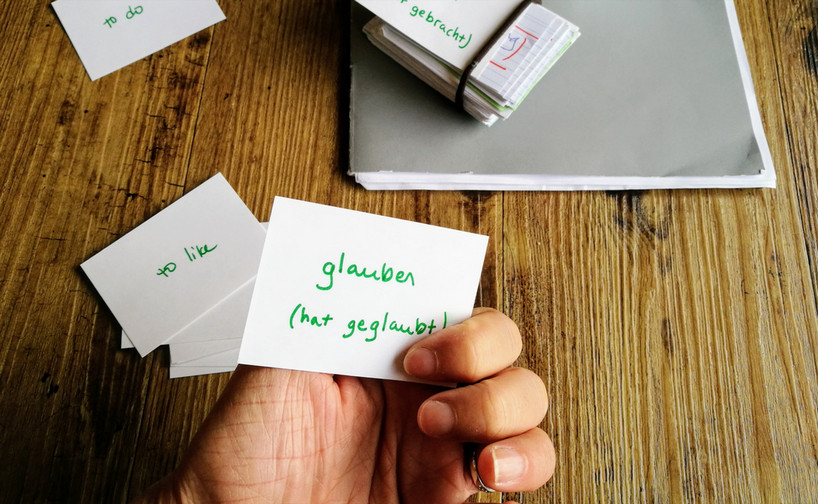 to do
gebracht)
to like
glauben
(hat geglaubt)